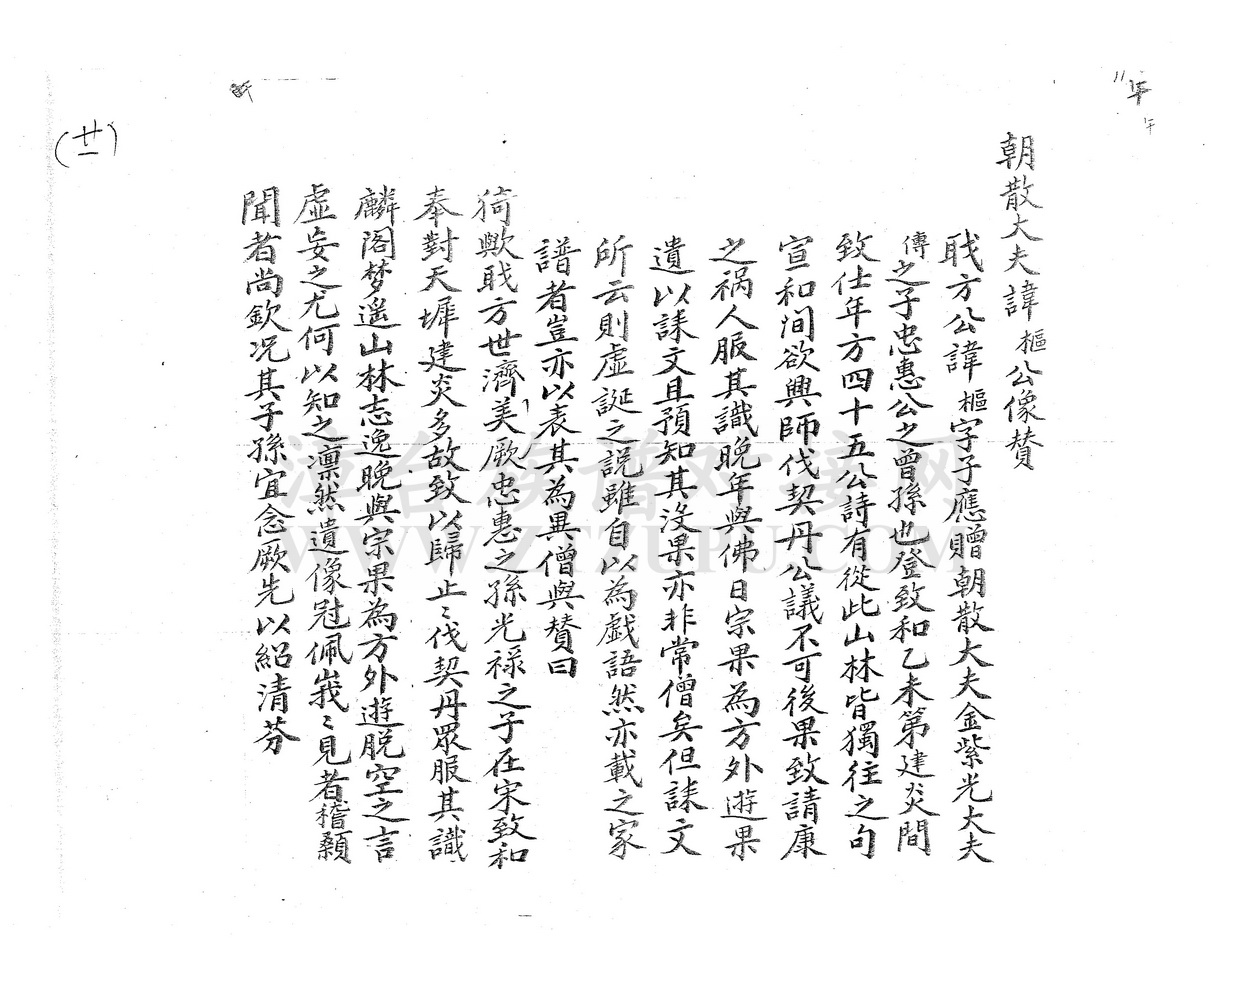 朝散大夫諱樞公像賛
職方公諱樞字子應贈朝散大夫金紫光大夫
傳之子忠惠公之曾孫也登致和乙未第建炎間
致仕年方四十五公詩有從此山林皆獨往之句
宣和間欲興師伐契丹公議不可後果致請康
之禍人服其識晚年與佛日宗果為方外遊果
遺以誄文且預知其沒果亦非常僧矣但誄文
所云則虛誕之説雖自以為戯語然亦載之家
譜者豈亦以表其為異僧與賛曰
猗歟職方世濟美厥忠惠之孫光禄之子在宋致和
奉對天墀建炎多故致以歸止〻伐契丹眾服其識
麟阁梦遥山林志逸晚與宗果為方外遊脱空之言
虛妄之尤何以知之凛然遺像冠佩峩〻見者稽顙
聞者尚欽况其子孫宜念厥先以紹清芬
(廿一)
年
午
津台族谱对接网
WWW.ZTZUPU.COM